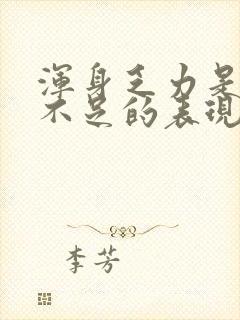 渾身乏力是
不足的表現
李芳